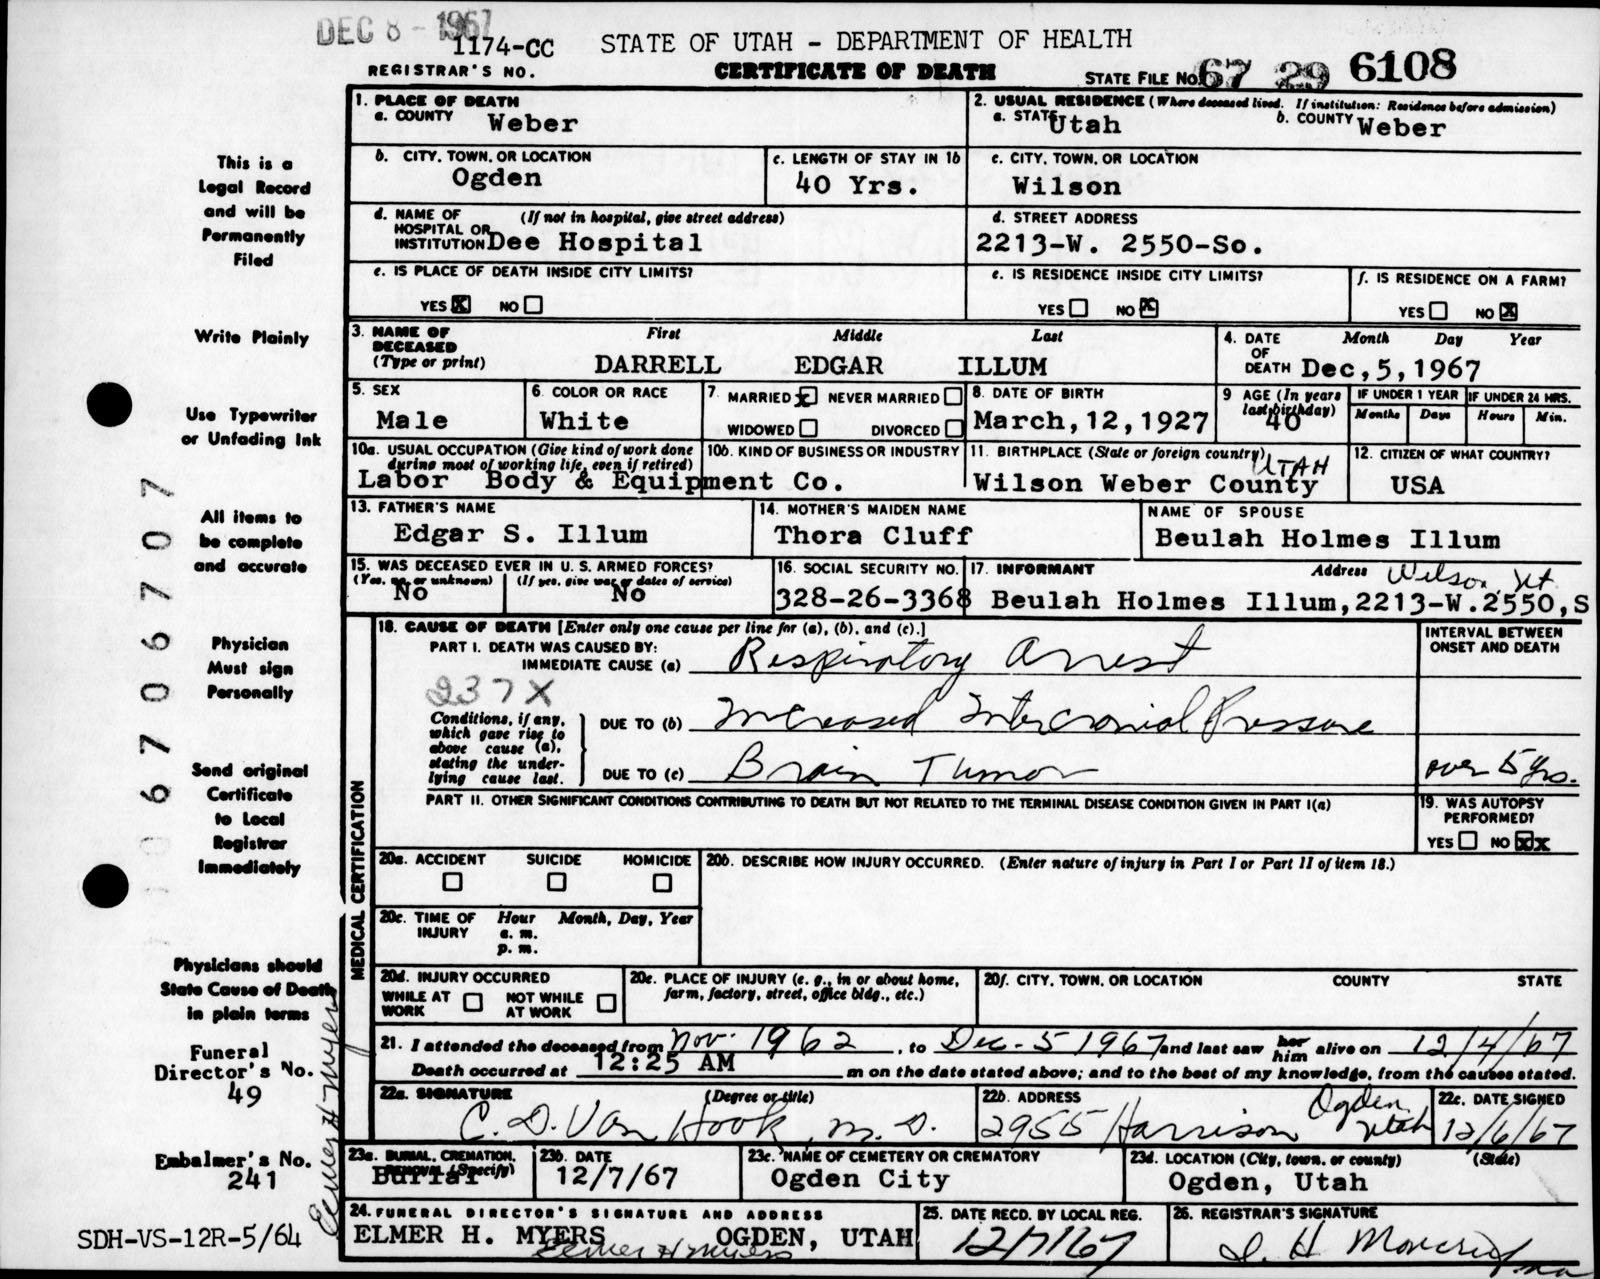 DEC 8 - 1967
1174-CC
REGISTRAR'S NO.
STATE OF UTAH - DEPARTMENT OF HEALTH
CERTIFICATE OF DEATH
STATE FILE No. 67 29 6108
This is a
Legal Record
and will be
Permanently
Filed
Write Plainly
Use Typewriter
or Unfading Ink
All items to
be complete
and accurate
Physician
Must sign
Personally
Send original
Certificate
to Local
Registrar
Immediately
Physicians should
State Cause of Death
in plain terms
Funeral
Director's No.
49
Embalmer's No.
241
SDH-VS-12R-5/64
Elmer H Myers
067067 07
1. PLACE OF DEATH
a. COUNTY Weber
2. USUAL RESIDENCE (Where deceased lived. If institution: Residence before admission)
a. STATE Utah b. COUNTY Weber
b. CITY, TOWN, OR LOCATION
Ogden
c. LENGTH OF STAY IN 1b
40 Yrs.
c. CITY, TOWN, OR LOCATION
Wilson
d. NAME OF HOSPITAL OR INSTITUTION (If not in hospital, give street address)
Dee Hospital
d. STREET ADDRESS
2213-W. 2550-So.
e. IS PLACE OF DEATH INSIDE CITY LIMITS?
YES X NO
e. IS RESIDENCE INSIDE CITY LIMITS?
YES NO X
f. IS RESIDENCE ON A FARM?
YES NO X
3. NAME OF DECEASED (Type or print) First Middle Last
DARRELL EDGAR ILLUM
4. DATE OF DEATH Month Day Year
Dec,5,1967
5. SEX
Male
6. COLOR OR RACE
White
7. MARRIED X NEVER MARRIED
WIDOWED DIVORCED
8. DATE OF BIRTH
March,12,1927
9 AGE (In years last birthday)
40
IF UNDER 1 YEAR IF UNDER 24 HRS.
Months Days Hours Min.
10a. USUAL OCCUPATION (Give kind of work done during most of working life, even if retired)
10b. KIND OF BUSINESS OR INDUSTRY
Labor Body & Equipment Co.
11. BIRTHPLACE (State or foreign country) UTAH
Wilson Weber County
12. CITIZEN OF WHAT COUNTRY?
USA
13. FATHER'S NAME
Edgar S. Illum
14. MOTHER'S MAIDEN NAME
Thora Cluff
NAME OF SPOUSE
Beulah Holmes Illum
15. WAS DECEASED EVER IN U. S. ARMED FORCES?
(Yes, no, or unknown) (If yes, give war or dates of service)
No No
16. SOCIAL SECURITY NO.
328-26-3368
17. INFORMANT Address Wilson, Ut
Beulah Holmes Illum,2213-W.2550,S
MEDICAL CERTIFICATION
18. CAUSE OF DEATH [Enter only one cause per line for (a), (b), and (c).]
INTERVAL BETWEEN ONSET AND DEATH
PART I. DEATH WAS CAUSED BY:
IMMEDIATE CAUSE (a) Respiratory Arrest
237X
Conditions, if any, which gave rise to above cause (a), stating the underlying cause last.
DUE TO (b) Increased Intercranial Pressure
DUE TO (c) Brain Tumor over 5 yrs.
PART II. OTHER SIGNIFICANT CONDITIONS CONTRIBUTING TO DEATH BUT NOT RELATED TO THE TERMINAL DISEASE CONDITION GIVEN IN PART I(a)
19. WAS AUTOPSY PERFORMED?
YES NO XX
20a. ACCIDENT SUICIDE HOMICIDE
20b. DESCRIBE HOW INJURY OCCURRED. (Enter nature of injury in Part I or Part II of item 18.)
20c. TIME OF INJURY Hour Month, Day, Year
a. m.
p. m.
20d. INJURY OCCURRED
WHILE AT WORK NOT WHILE AT WORK
20e. PLACE OF INJURY (e. g., in or about home, farm, factory, street, office bldg., etc.)
20f. CITY, TOWN, OR LOCATION COUNTY STATE
21. I attended the deceased from Nov. 1962, to Dec. 5 1967 and last saw her him alive on 12/4/67
Death occurred at 12:25 AM m on the date stated above; and to the best of my knowledge, from the causes stated.
22a. SIGNATURE (Degree or title)
C. D. Van Hook, M. D.
22b. ADDRESS
2955 Harrison Ogden Utah
22c. DATE SIGNED
12/6/67
23a. BURIAL, CREMATION, REMOVAL (Specify)
Burial
23b. DATE
12/7/67
23c. NAME OF CEMETERY OR CREMATORY
Ogden City
23d. LOCATION (City, town, or county) (State)
Ogden, Utah
24. FUNERAL DIRECTOR'S SIGNATURE AND ADDRESS
ELMER H. MYERS OGDEN, UTAH
Elmer H Myers
25. DATE RECD. BY LOCAL REG.
12/7/67
26. REGISTRAR'S SIGNATURE